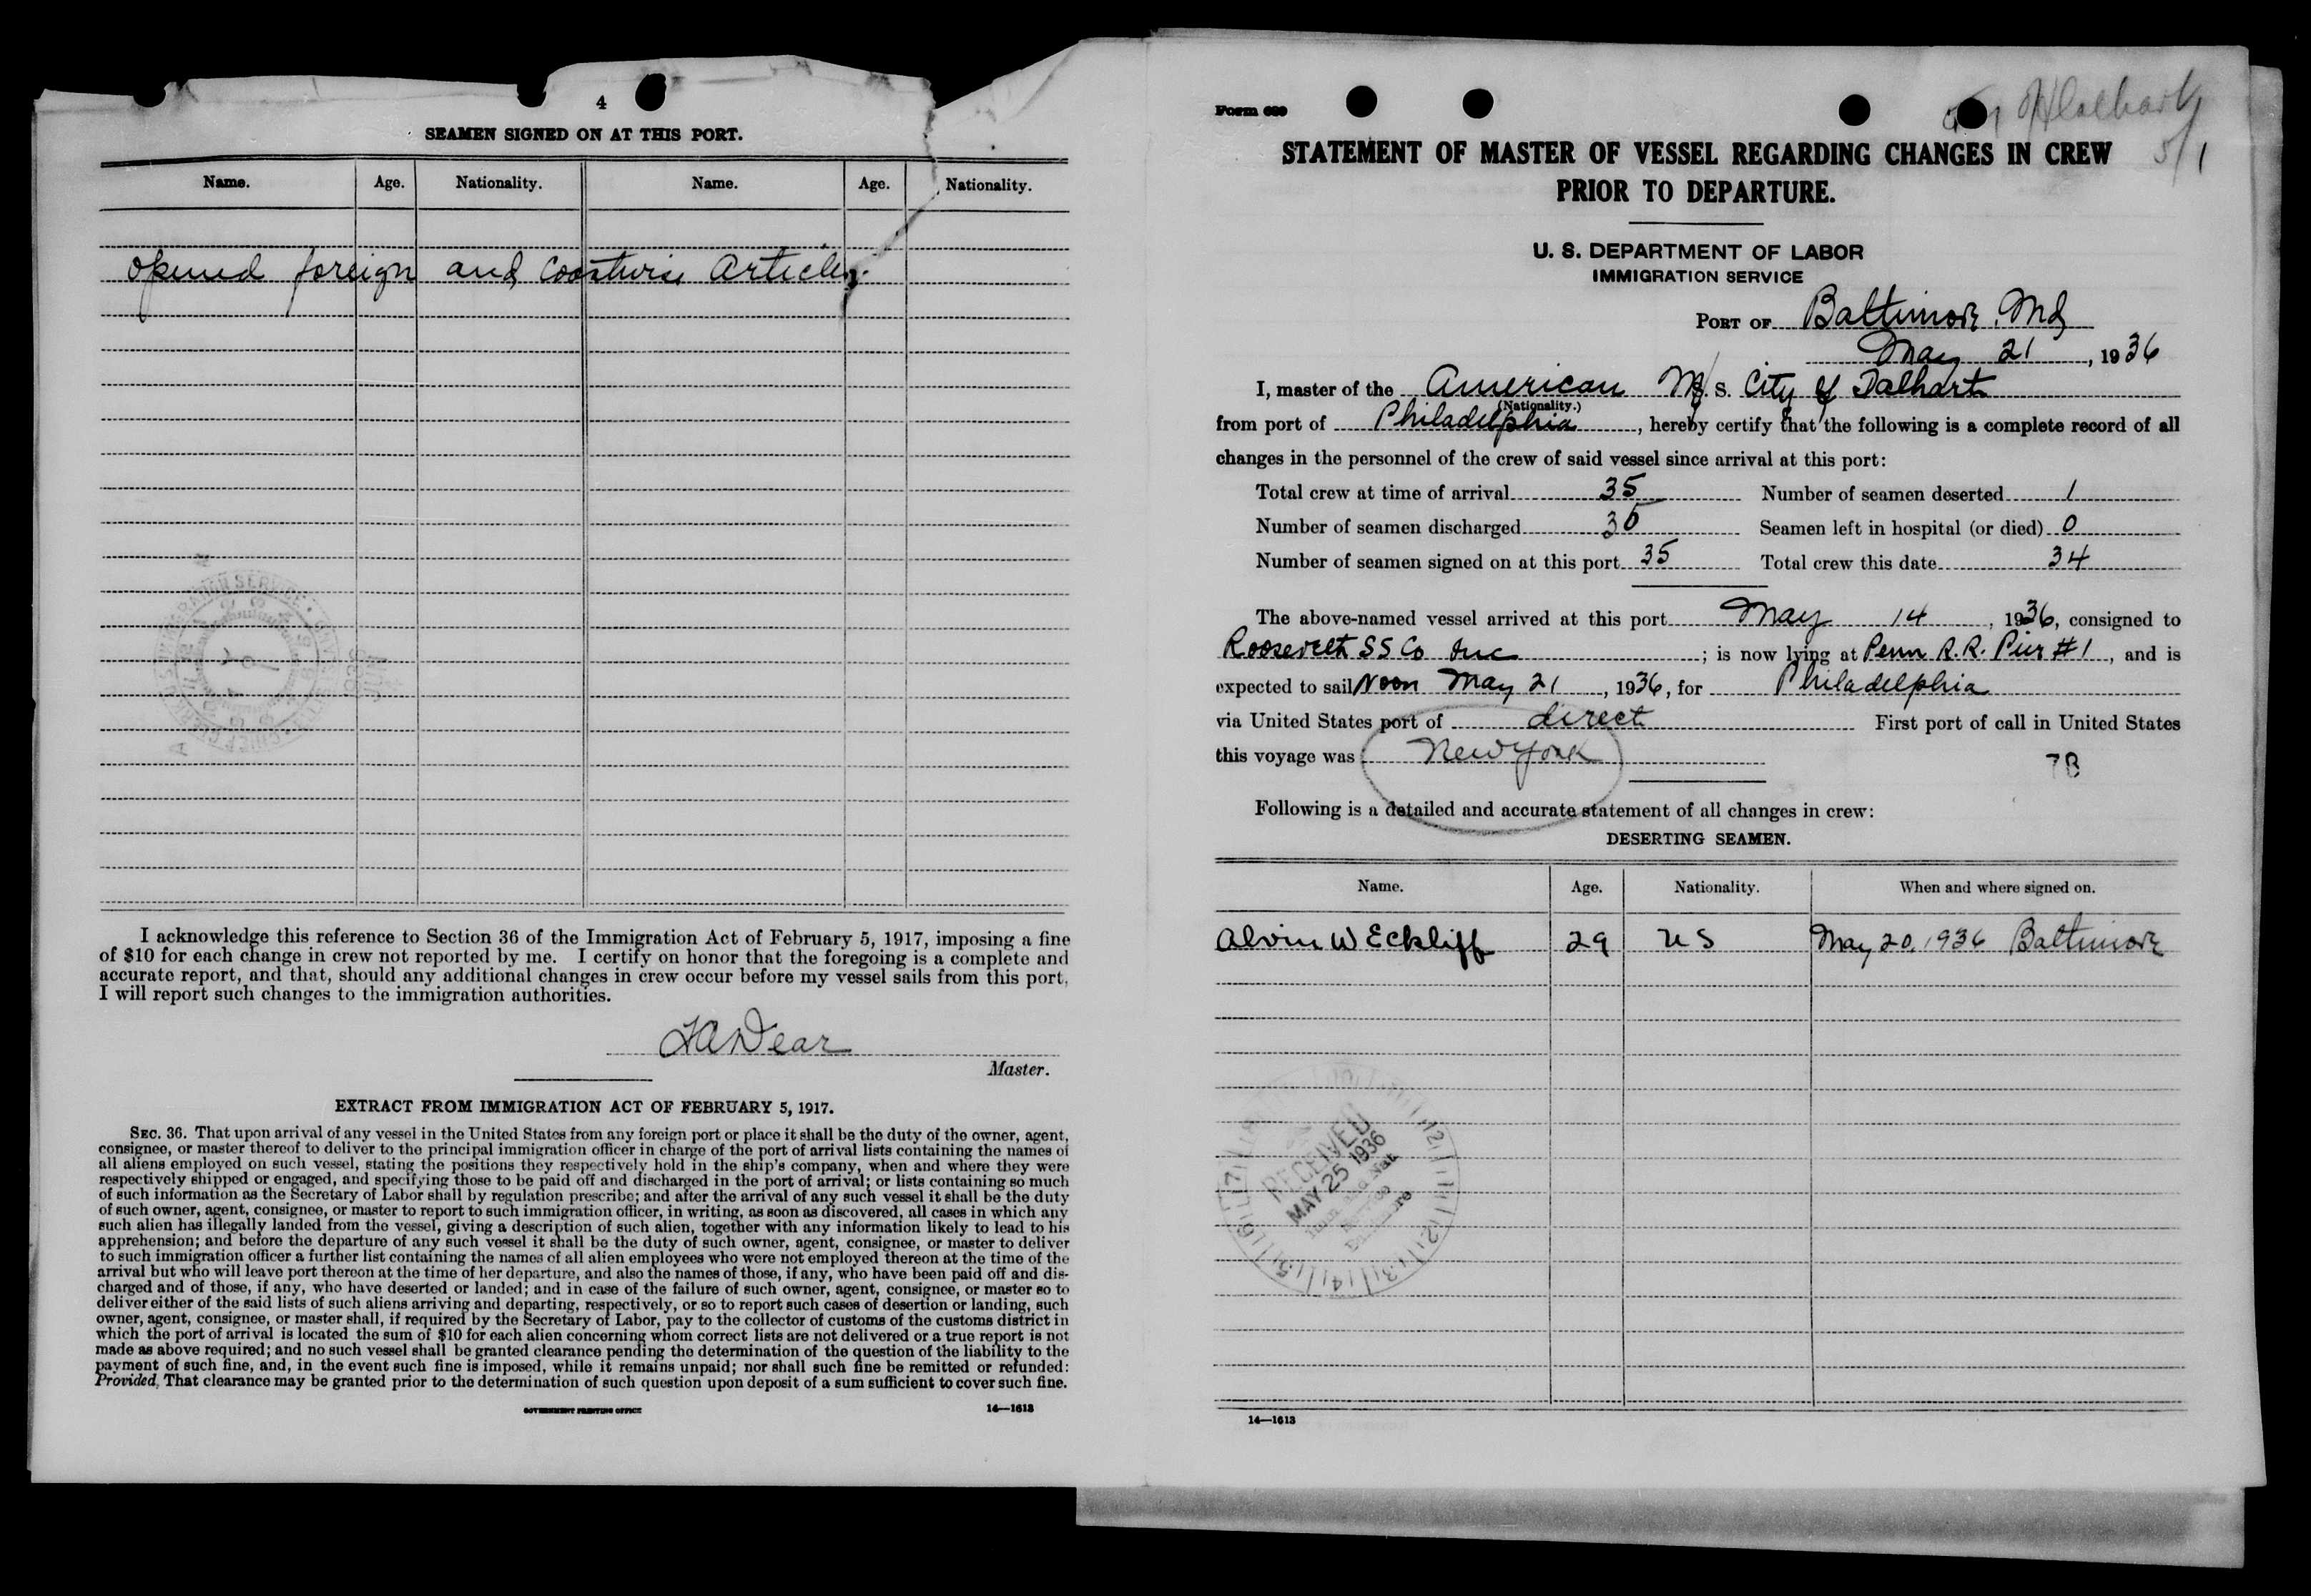 4
SEAMEN SIGNED ON AT THIS PORT.
Name. Age. Nationality. Name. Age. Nationality.
opened foreign and Coastwise Articles.
I acknowledge this reference to Section 36 of the Immigration Act of February 5, 1917, imposing a fine
of $10 for each change in crew not reported by me. I certify on honor that the foregoing is a complete and
accurate report, and that, should any additional changes in crew occur before my vessel sails from this port,
I will report such changes to the immigration authorities.
Dear
Master.
EXTRACT FROM IMMIGRATION ACT OF FEBRUARY 5, 1917.
SEC. 36. That upon arrival of any vessel in the United States from any foreign port or place it shall be the duty of the owner, agent,
consignee, or master thereof to deliver to the principal immigration officer in charge of the port of arrival lists containing the names of
all aliens employed on such vessel, stating the positions they respectively hold in the ship's company, when and where they were
respectively shipped or engaged, and specifying those to be paid off and discharged in the port of arrival; or lists containing so much
of such information as the Secretary of Labor shall by regulation prescribe; and after the arrival of any such vessel it shall be the duty
of such owner, agent, consignee, or master to report to such immigration officer, in writing, as soon as discovered, all cases in which any
such alien has illegally landed from the vessel, giving a description of such alien, together with any information likely to lead to his
apprehension; and before the departure of any such vessel it shall be the duty of such owner, agent, consignee, or master to deliver
to such immigration officer a further list containing the names of all alien employees who were not employed thereon at the time of the
arrival but who will leave port thereon at the time of her departure, and also the names of those, if any, who have been paid off and dis-
charged and of those, if any, who have deserted or landed; and in case of the failure of such owner, agent, consignee, or master so to
deliver either of the said lists of such aliens arriving and departing, respectively, or so to report such cases of desertion or landing, such
owner, agent, consignee, or master shall, if required by the Secretary of Labor, pay to the collector of customs of the customs district in
which the port of arrival is located the sum of $10 for each alien concerning whom correct lists are not delivered or a true report is not
made as above required; and no such vessel shall be granted clearance pending the determination of the question of the liability to the
payment of such fine, and, in the event such fine is imposed, while it remains unpaid; nor shall such fine be remitted or refunded:
Provided, That clearance may be granted prior to the determination of such question upon deposit of a sum sufficient to cover such fine.
GOVERNMENT PRINTING OFFICE 14—1613
Form 689
5/1
STATEMENT OF MASTER OF VESSEL REGARDING CHANGES IN CREW
PRIOR TO DEPARTURE.
U. S. DEPARTMENT OF LABOR
IMMIGRATION SERVICE
PORT OF Baltimore, Md
May 21, 1936
I, master of the American M/S. S. City of Dalhart
(Nationality.)
from port of Philadelphia, hereby certify that the following is a complete record of all
changes in the personnel of the crew of said vessel since arrival at this port:
Total crew at time of arrival 35 Number of seamen deserted 1
Number of seamen discharged Seamen left in hospital (or died) 0
Number of seamen signed on at this port 35 Total crew this date 34
The above-named vessel arrived at this port May 14, 1936, consigned to
Roosevelt SS Co Inc; is now lying at Penn R.R. Pier #1, and is
expected to sail Noon May 21, 1936, for Philadelphia
via United States port of direct First port of call in United States
this voyage was New York
7B
Following is a detailed and accurate statement of all changes in crew:
DESERTING SEAMEN.
Name. Age. Nationality. When and where signed on.
Alvin W Eckliff 29 US May 20, 1936 Baltimore
RECEIVED
MAY 25 1936
14—1613